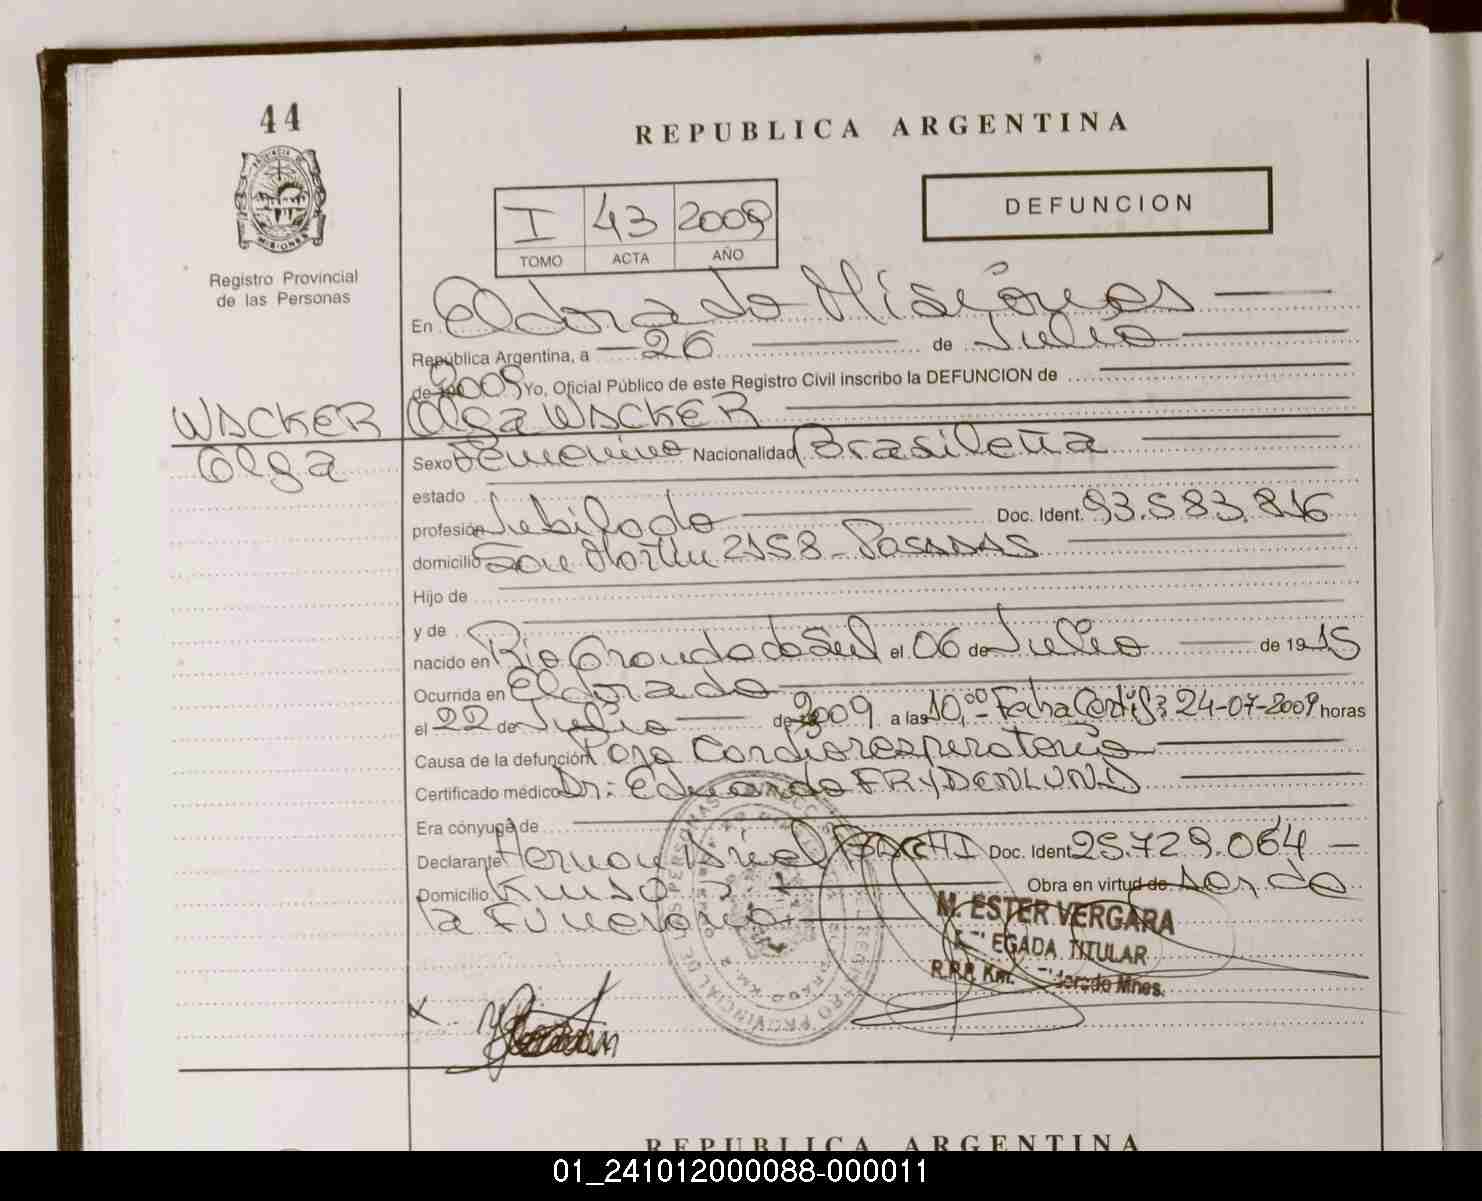 44
REPUBLICA ARGENTINA
PROVINCIA DE MISIONES
Registro Provincial
de las Personas
I 43 2009
TOMO ACTA AÑO
DEFUNCION
En Eldorado Misiones
República Argentina, a 26 de Julio
de 2009 Yo, Oficial Público de este Registro Civil inscribo la DEFUNCION de
WACKER
Olga
Olga WACKER
Sexo Femenino Nacionalidad Brasileña
estado
profesión Jubilado Doc. Ident. 93.583.816
domicilio San Martin 2158 - POSADAS
Hijo de
y de
nacido en Rio Grande do Sul el 06 de Julio de 1915
Ocurrida en Eldorado
el 22 de Julio de 2009 a las 10,00 - Fecha Certif: 24-07-2009 horas
Causa de la defunción Paro Cardiorespiratorio
Certificado médico Dr: Eduardo FRYDENLUND
Era cónyuge de
Declarante Hernan Ariel BACCHI Doc. Ident. 25.729.064
Domicilio Obra en virtud de ser de
la Funeraria
M. ESTER VERGARA
TITULAR
R.P.P. Km. Eldorado Mnes.
REPUBLICA ARGENTINA
01_241012000088-000011